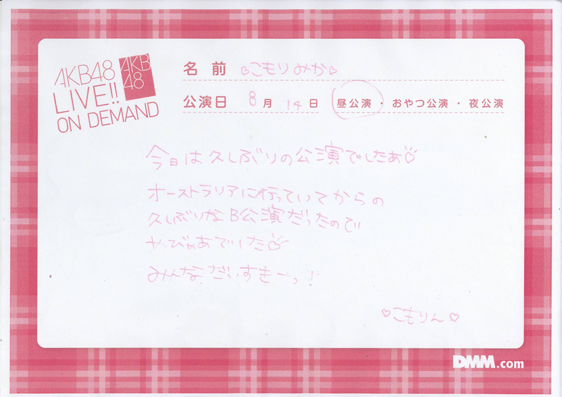 AKB48
LIVE!!
ON DEMAND
AKB
48
名前 ♡こもりみか♡
公演日 8月14日 昼公演・おやつ公演・夜公演
今日は久しぶりの公演でしたあ♡
オーストラリアに行っていてからの
久しぶりなB公演だったので
みんなだいすきーっ!
♡こもりん♡
DMM.com